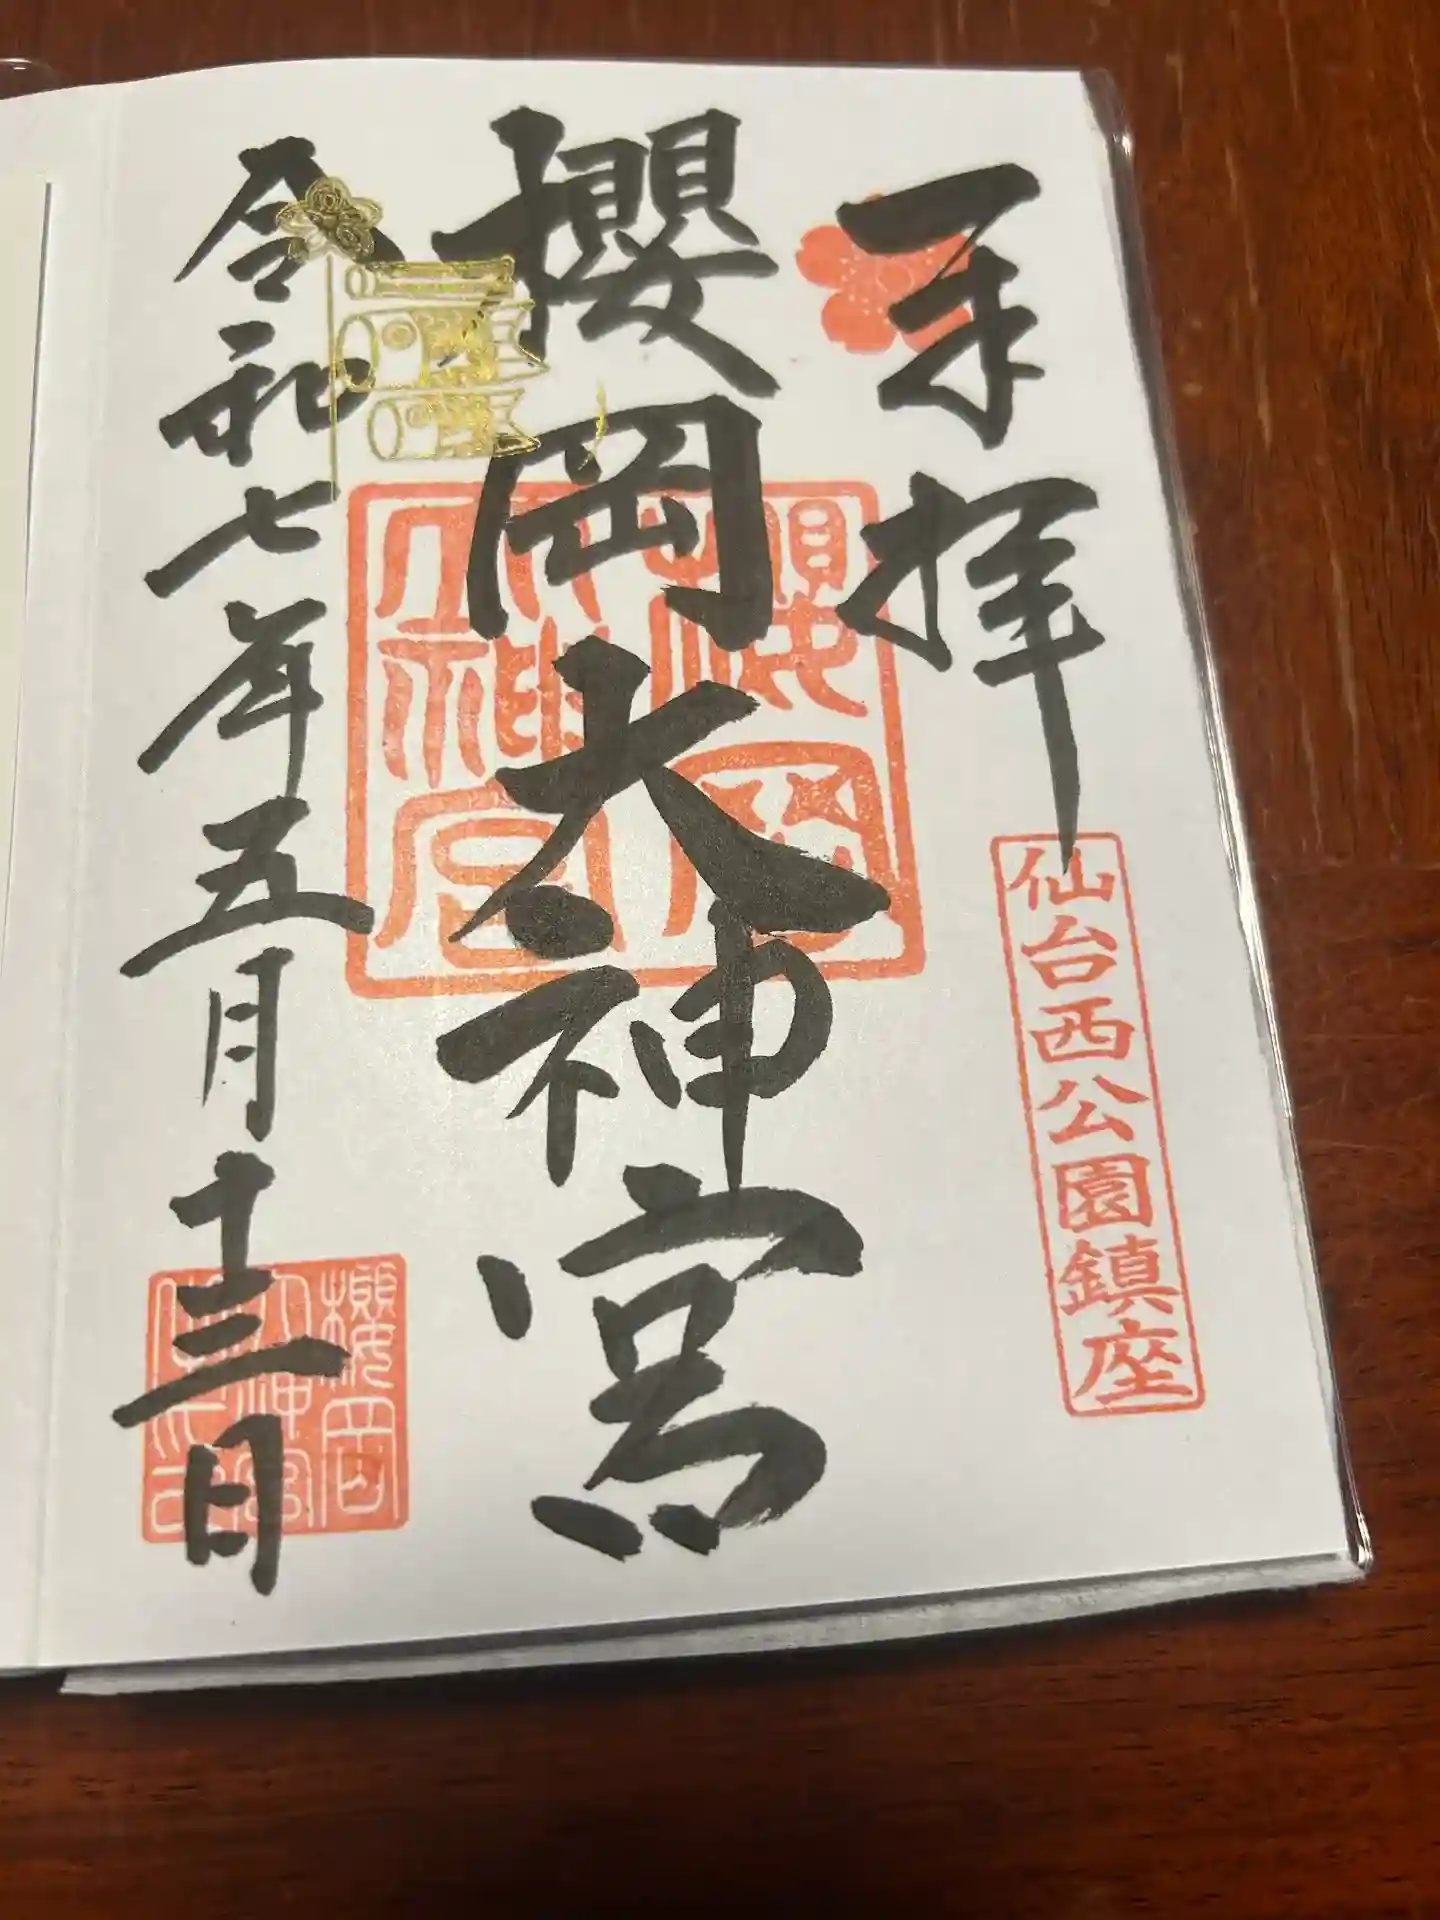 奉拝
仙台西公園鎮座
櫻岡大神宮
櫻岡
大神宮
令和七年五月十三日
櫻岡
大神宮